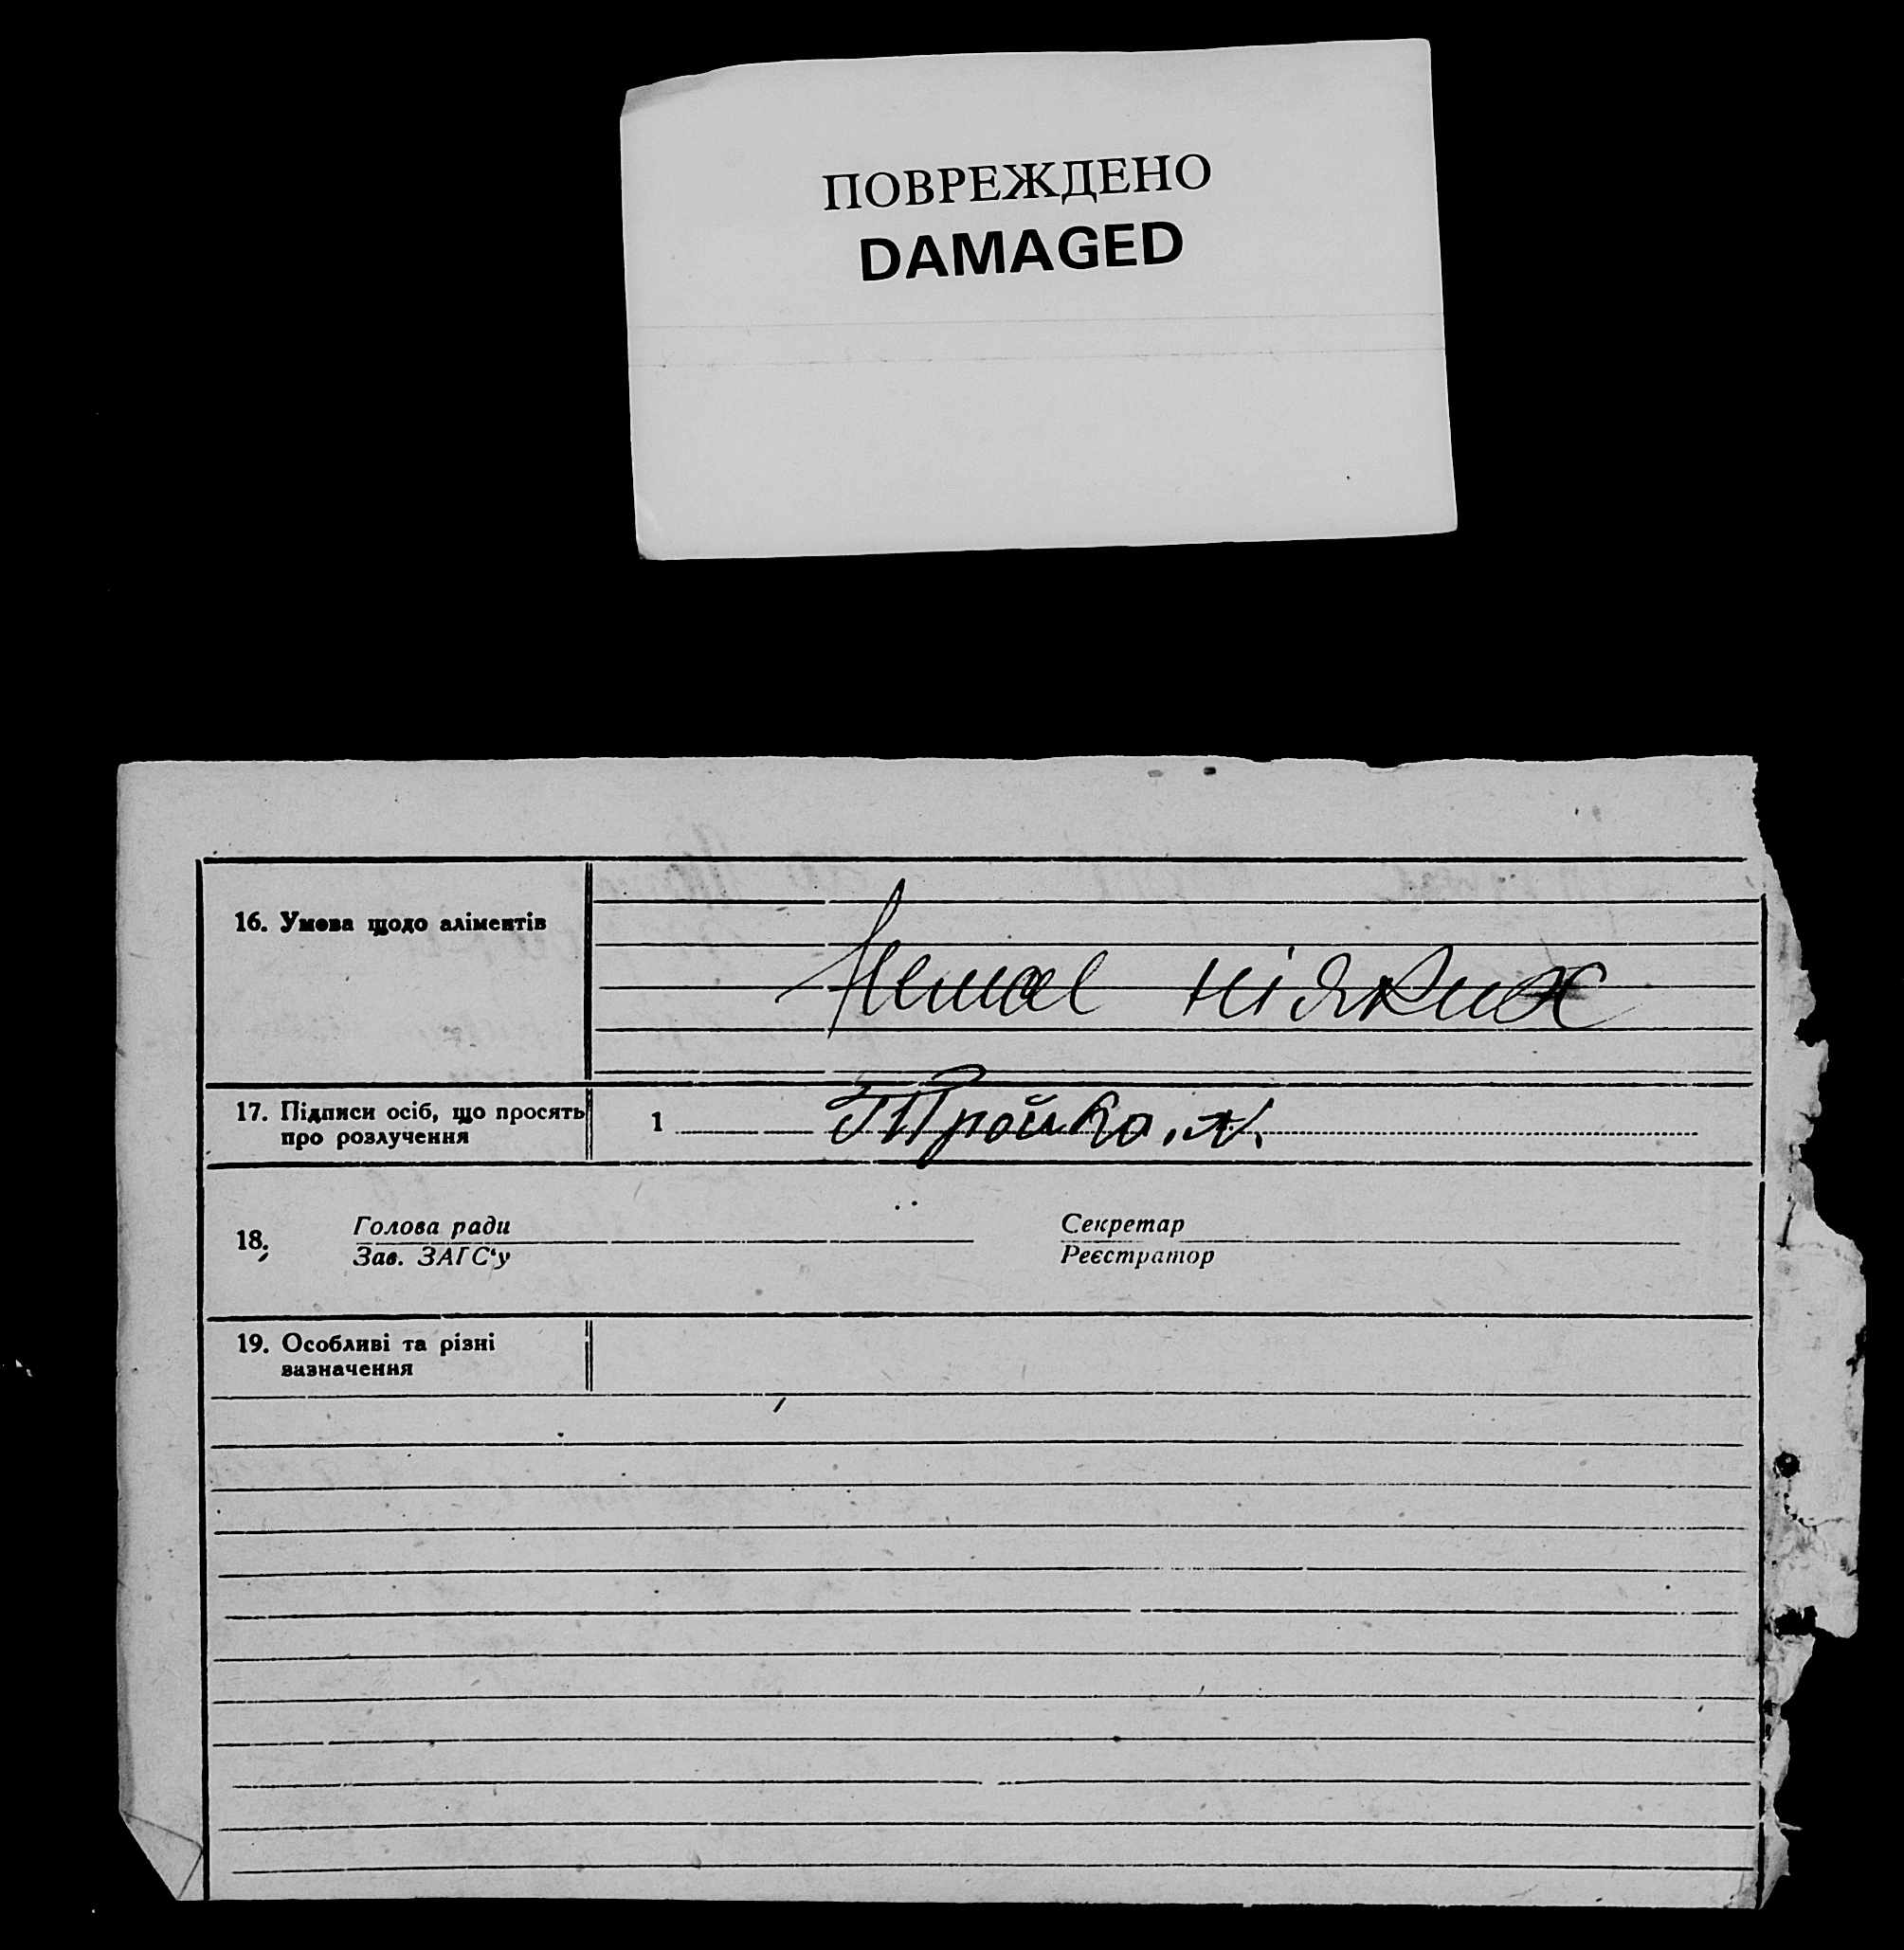 ПОВРЕЖДЕНО
DAMAGED
16. Умова щодо аліментів
Немає ніяких
17. Підписи осіб, що просять
про розлучення
1 Тройко
18.
Голова ради
Зав. ЗАГС'у
Секретар
Реєстратор
19. Особливі та різні
зазначення